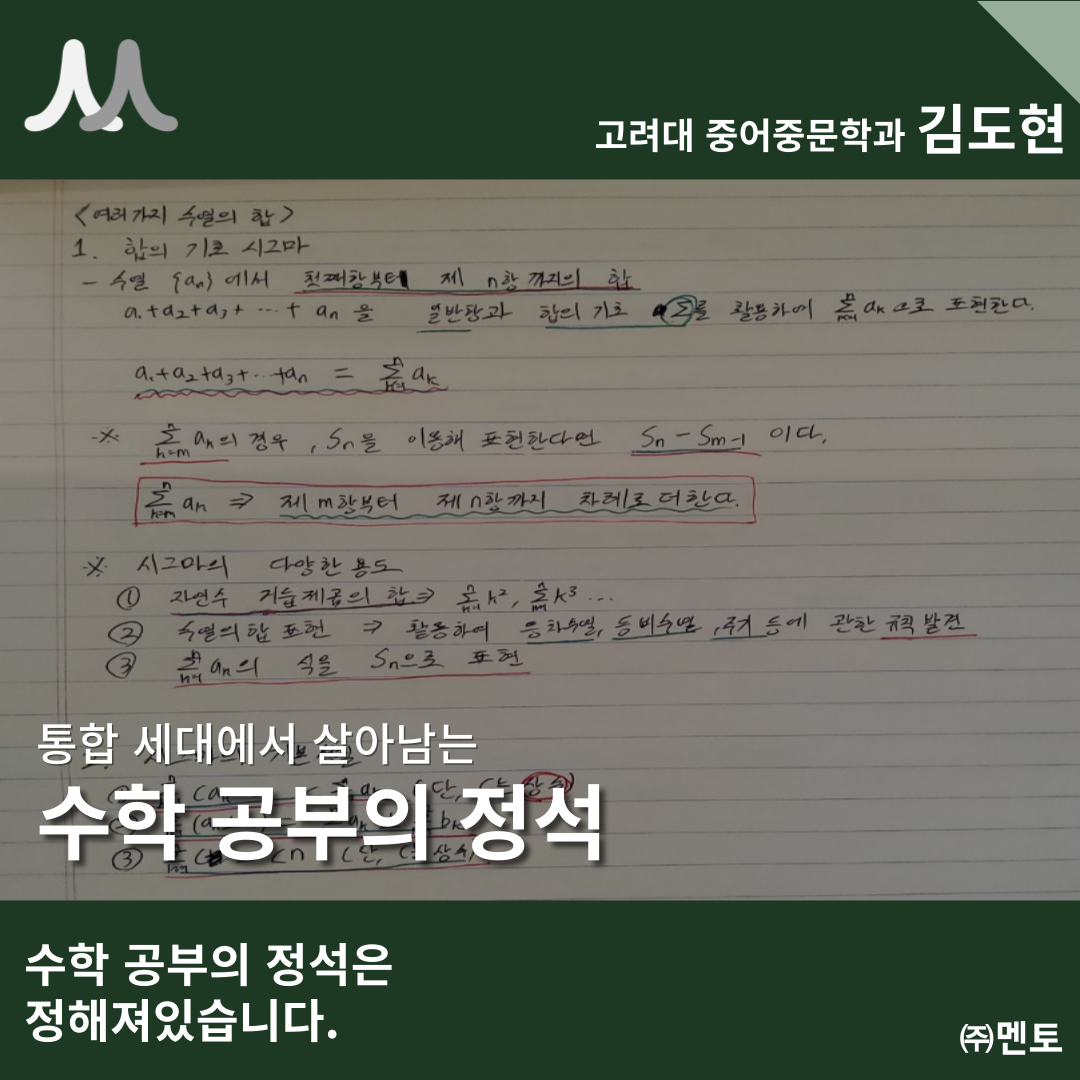 고려대 중어중문학과 김도현
<여러가지 수열의 합>
1. 합의 기호 시그마
- 수열 {aₙ}에서 첫째항부터 제 n항까지의 합
a₁+a₂+a₃+ ⋯ + aₙ 을 일반항과 합의 기호 Σ를 활용하여 ∑ⁿₖ₌₁ aₖ으로 표현한다.
a₁+a₂+a₃+⋯+aₙ = ∑ⁿₖ₌₁ aₖ
※ ∑ⁿₖ₌ₘ aₖ의 경우, Sₙ을 이용해 표현한다면 Sₙ - Sₘ₋₁ 이다.
∑ⁿₖ₌ₘ aₖ ⇒ 제 m항부터 제 n항까지 차례로 더한다.
※ 시그마의 다양한 용도
① 자연수 거듭제곱의 합 ⇒ ∑ⁿₖ₌₁ k², ∑ⁿₖ₌₁ k³ ⋯
② 수열의 합 표현 ⇒ 활용하여 등차수열, 등비수열, 주기 등에 관한 규칙 발견
③ ∑ⁿₖ₌₁ aₖ의 식을 Sₙ으로 표현
통합 세대에서 살아남는
수학 공부의 정석
③
수학 공부의 정석은
정해져있습니다.
㈜멘토